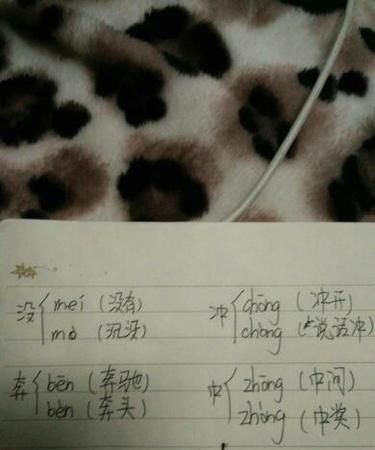 没 { méi (没有) 冲 { chōng (冲开)
mò (沉没) chòng (说话冲)
奔 { bēn (奔驰) 中 { zhōng (中间)
bèn (奔头) zhòng (中奖)